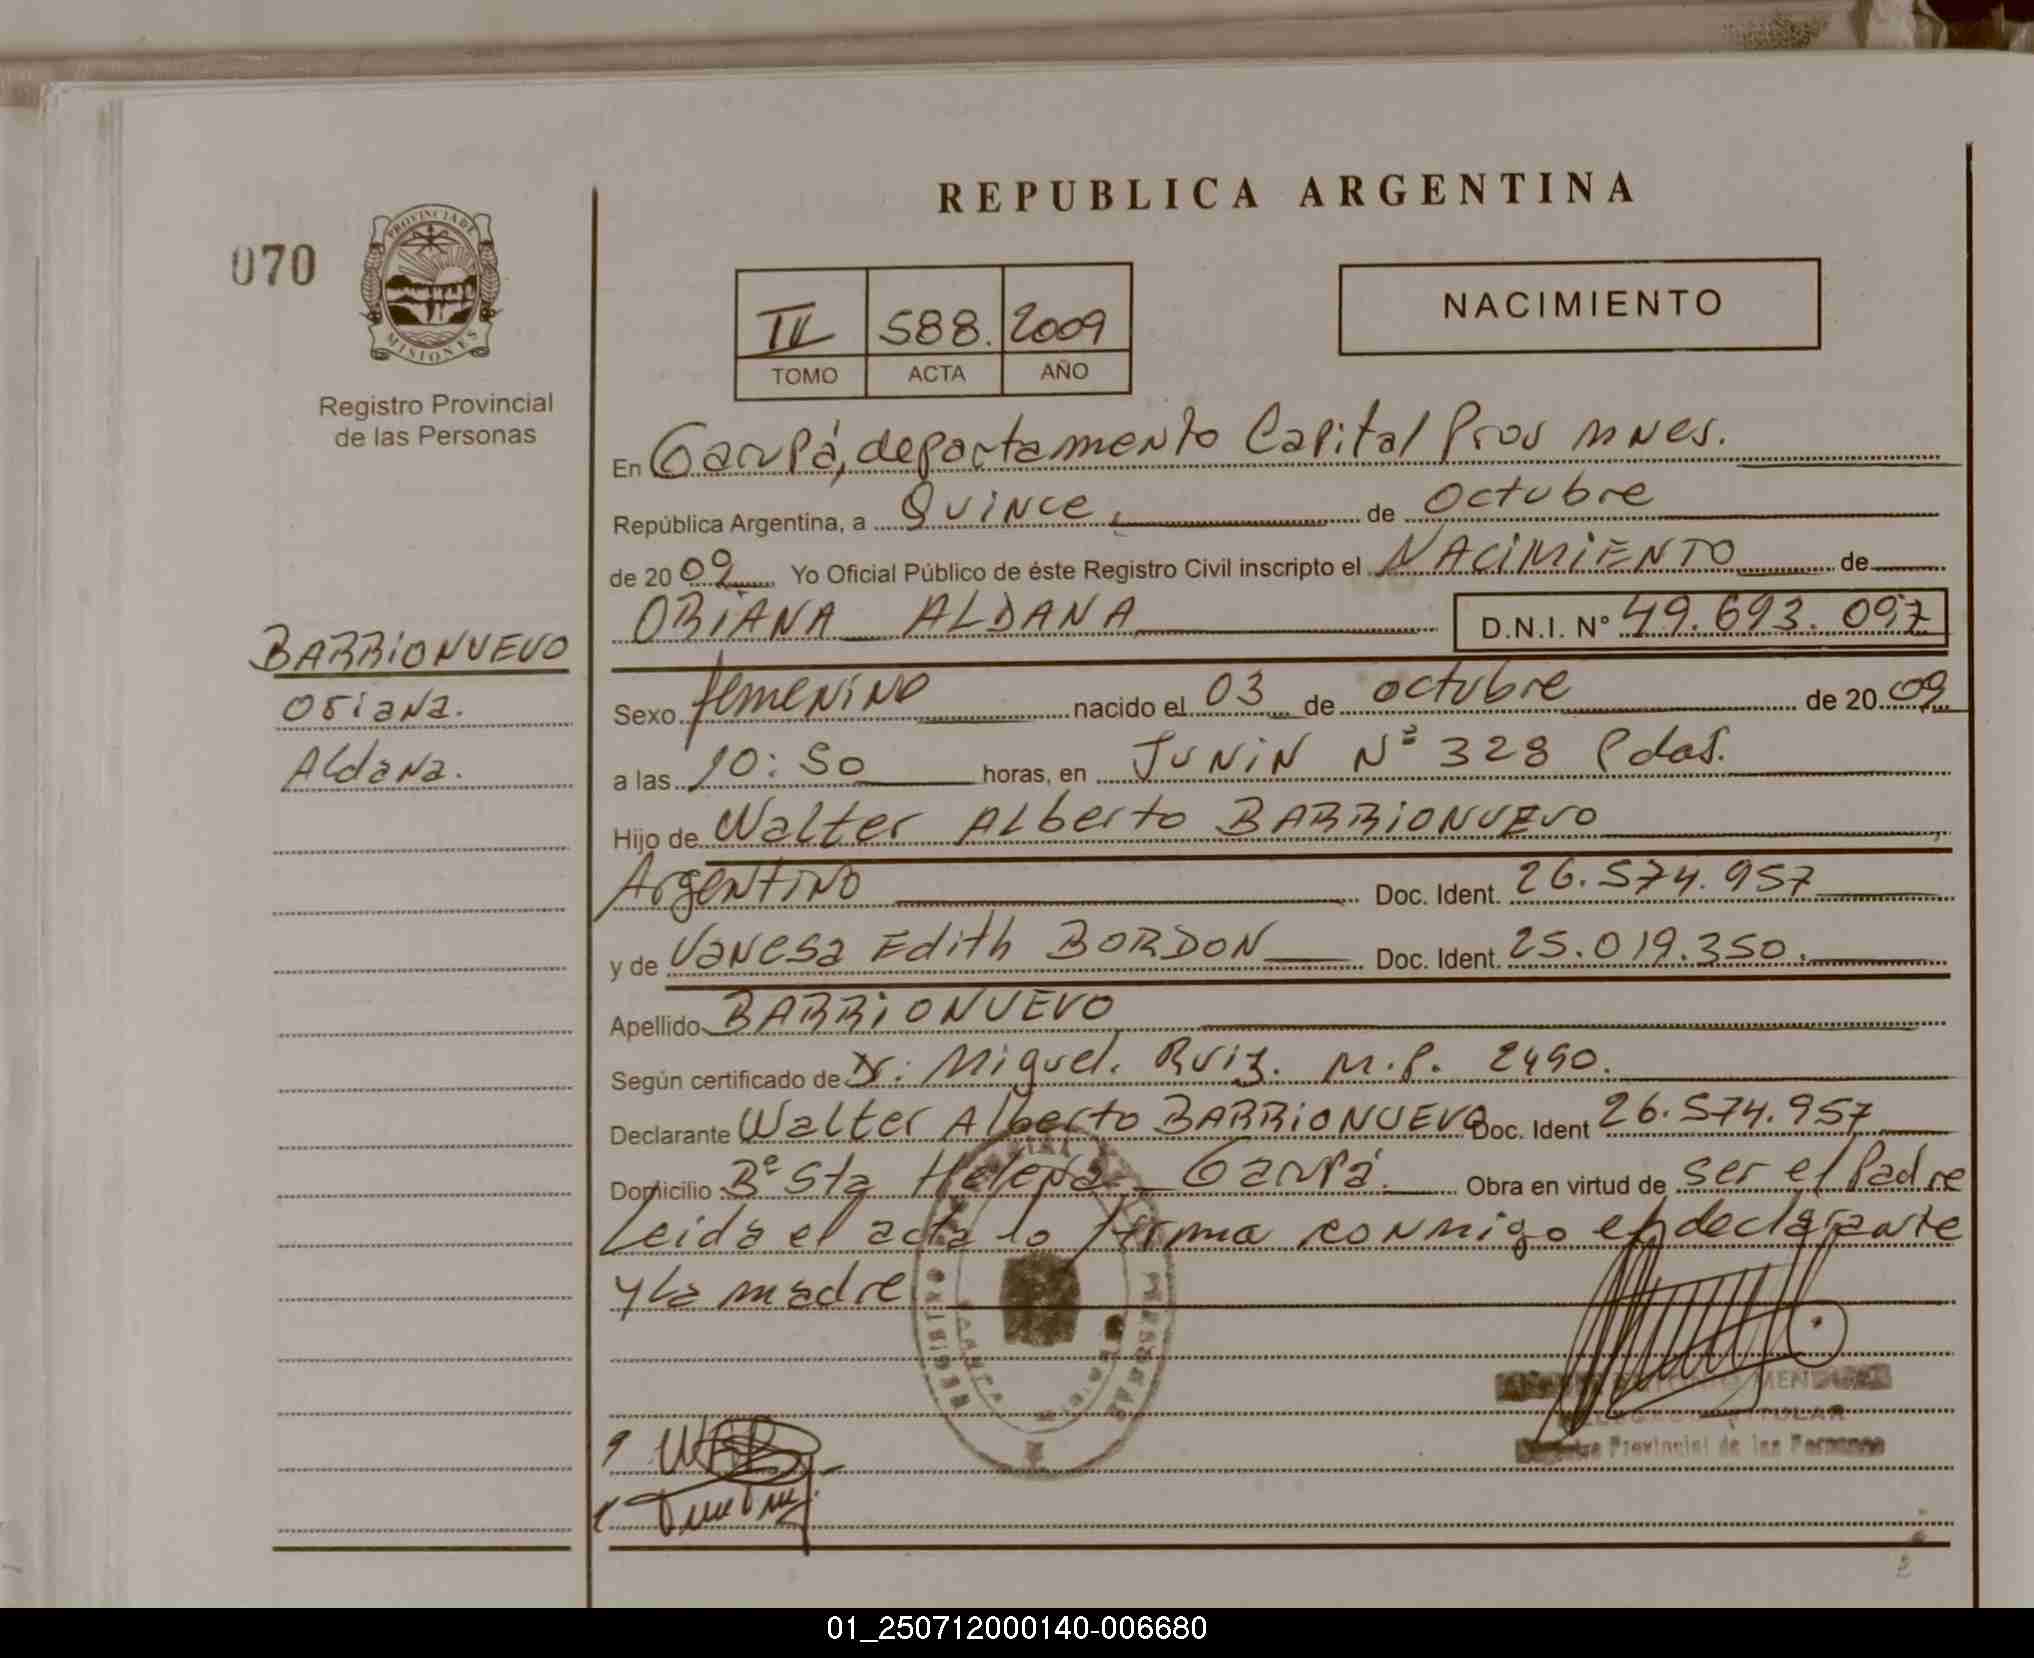 REPUBLICA ARGENTINA
070
PROVINCIA DE
MISIONES
Registro Provincial
de las Personas
588. 2009
TOMO ACTA AÑO
NACIMIENTO
En Garupá, departamento Capital Mnes.
República Argentina, a Quince, de octubre
de 2009 Yo Oficial Público de éste Registro Civil inscripto el NACIMIENTO de
ORIANA ALDANA D.N.I. Nº 49.693.097
BARRIONUEVO
Oriana.
Aldana.
Sexo femenino nacido el 03 de octubre de 2009
a las 10:50 horas, en JUNIN Nº 328 Pdas.
Hijo de Walter Alberto BARRIONUEVO
Argentino Doc. Ident. 26.574.957
y de Vanesa Edith BORDON Doc. Ident. 25.019.350.
Apellido BARRIONUEVO
Según certificado de Dr. Miguel. Ruiz. M.P. 2490.
Declarante Walter Alberto BARRIONUEVO Doc. Ident 26.574.957
Domicilio Bº Sta Helena Garupá. Obra en virtud de ser el Padre
Leida el acta lo firma conmigo el declarante
y la madre
TITULAR
Provincial de las Personas
01_250712000140-006680